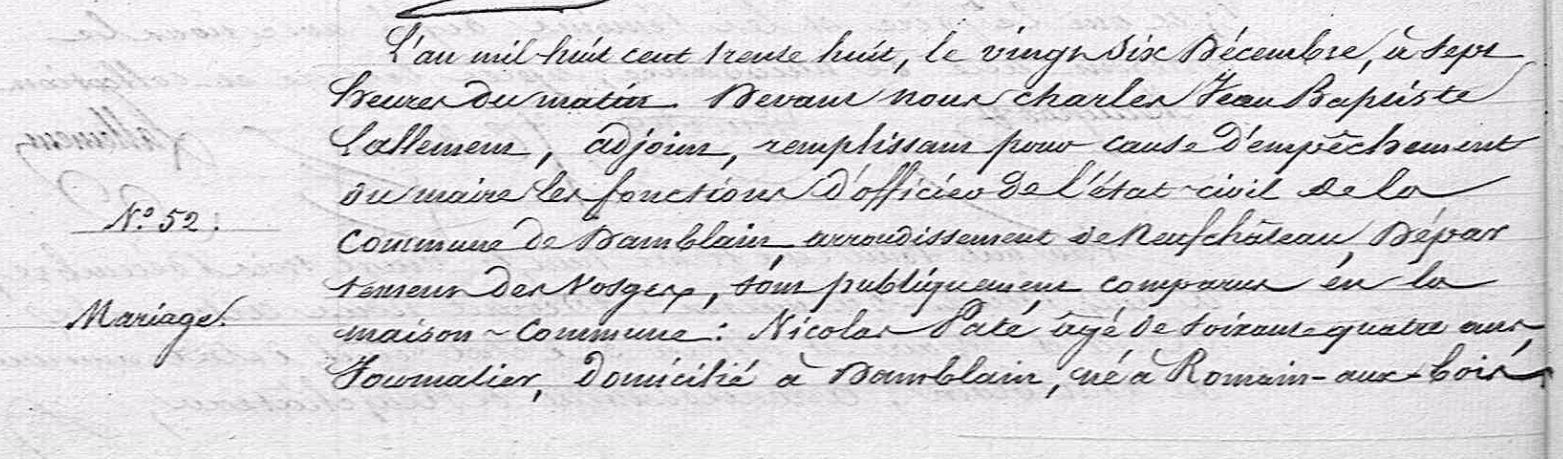 L'an mil huit cent trente huit, le vingt six Décembre, à sept
heures du matin Devant nous charles Jean Baptiste
Lallement, adjoint, remplissant pour cause d'empêchement
N.º 52.
du maire les fonctions d'officier de l'état-civil de la
commune de Damblain arrondissement de Neufchâteau Dépar
tement des Vosges, sont publiquement comparus en la
Mariage.
maison-commune : Nicolas Paté âgé de soixante quatre ans,
Journalier, domicilié à Damblain, né à Romain-aux-bois